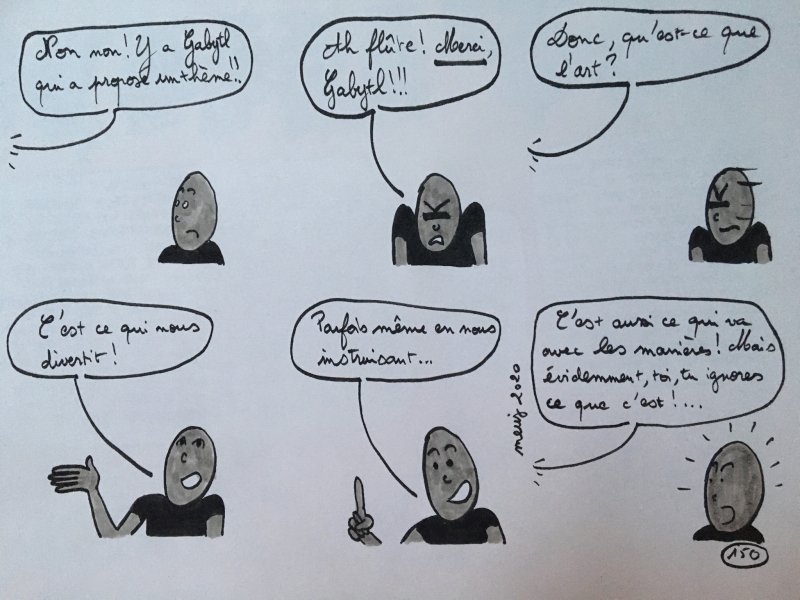 Non non! Y a Gabytl
qui a proposé un thème!!
Ah flûte! Merci,
Gabytl!!!
Donc, qu'est-ce que
l'art?
C'est ce qui nous
divertit!
Parfois même en nous
instruisant...
C'est aussi ce qui va
avec les manières! Mais
évidemment, toi, tu ignores
ce que c'est!...
2020
150